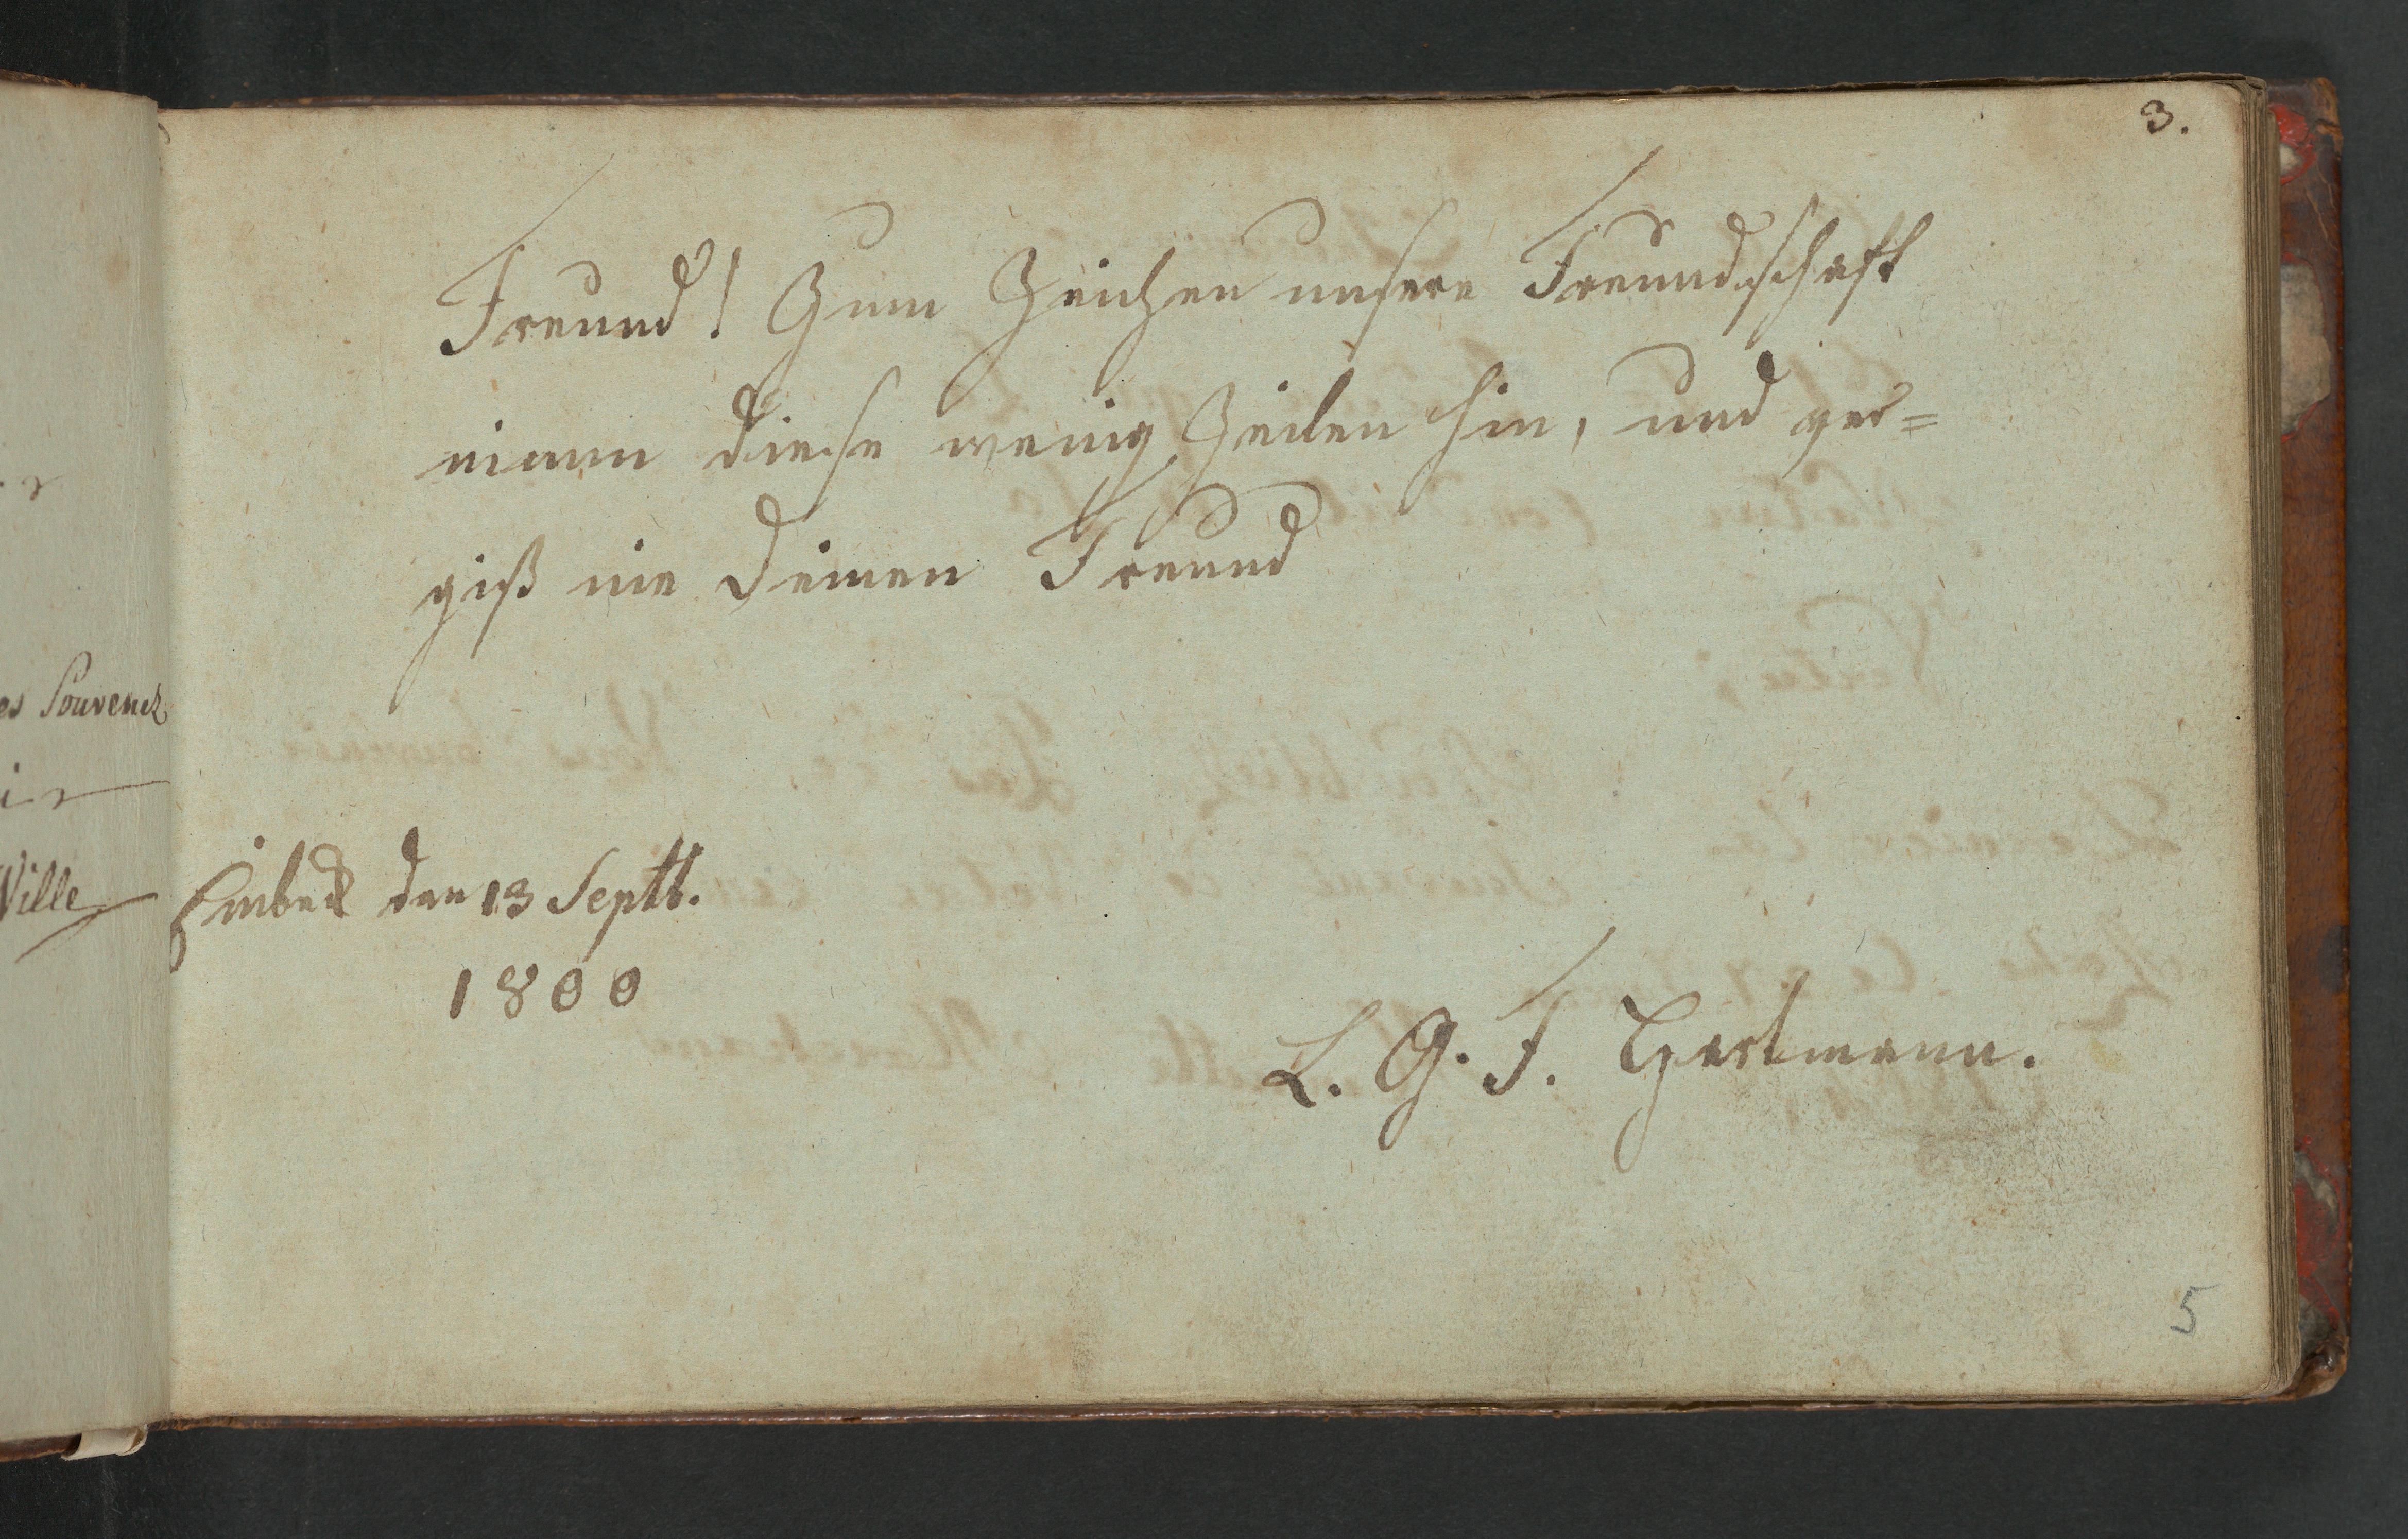 3.
Freund! Zum Zeichen unsere Freundschaft
nimm diese wenig Zeilen hin, und ver=
giß nie deinen Freund
es Souvenez
ir
Ville
Einbeck den 13 Septb.
1800
L. G. F. Hartmann.
5